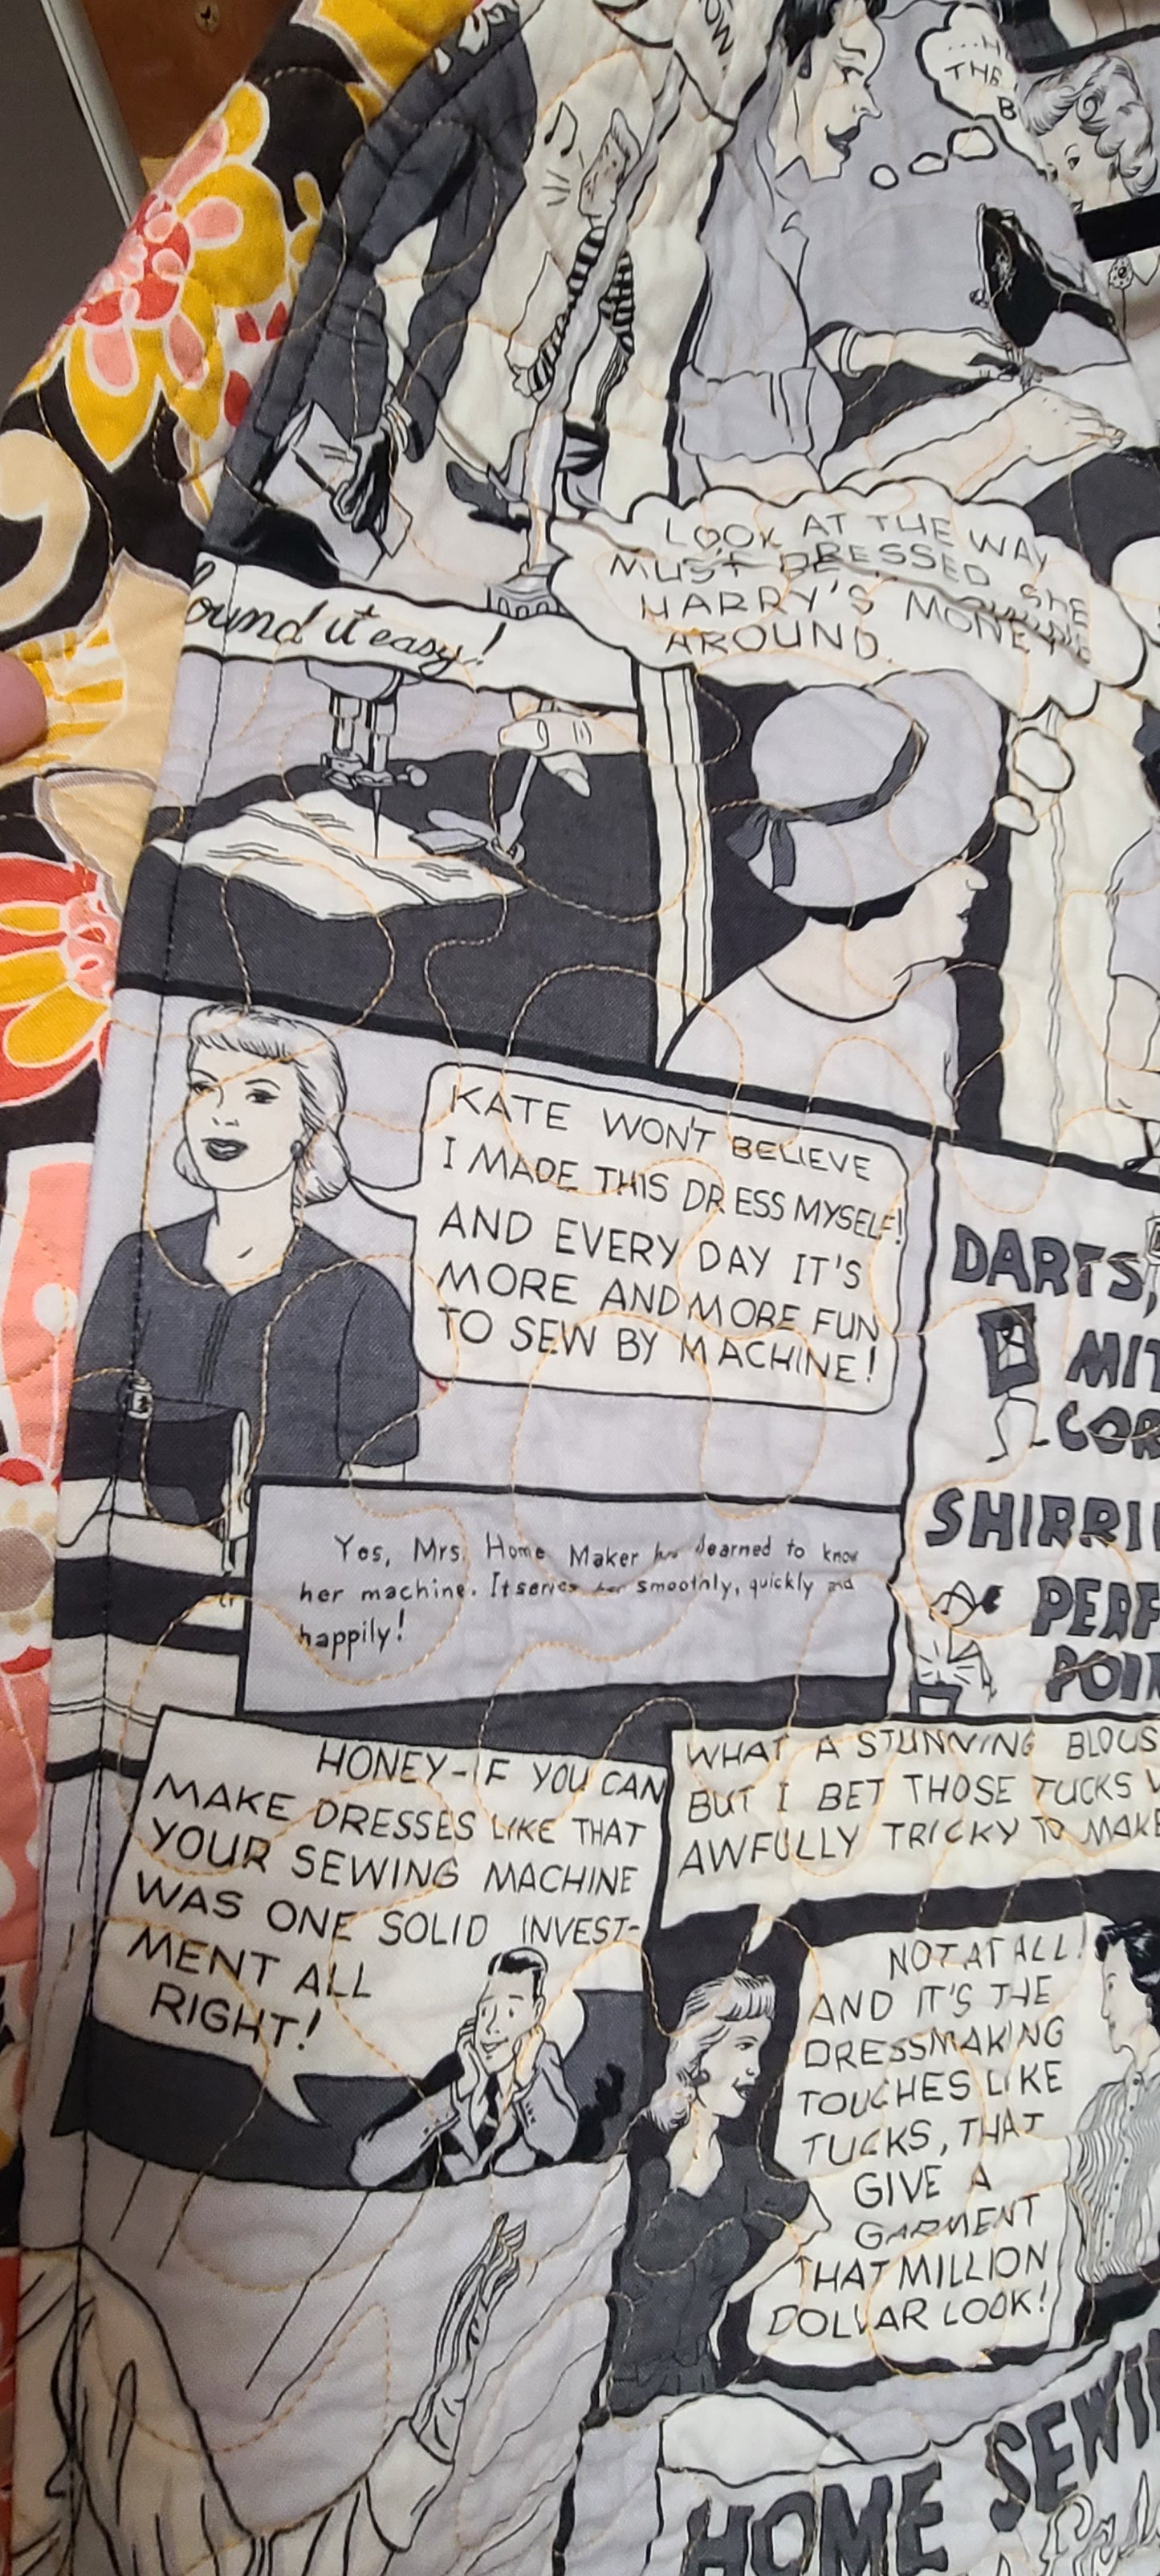 OW
THE
B
ound it easy!
LOOK AT THE WAY
MUST DRESSED SHE
HARRY'S MONEY
AROUND.
KATE WON'T BELIEVE
I MADE THIS DRESS MYSELF!
AND EVERY DAY IT'S
MORE AND MORE FUN
TO SEW BY MACHINE!
DARTS,
MIT
COR
SHIRRI
PERF
POIN
Yes, Mrs. Home Maker has learned to know
her machine. It serves her smoothly, quickly and
happily!
HONEY-IF YOU CAN
MAKE DRESSES LIKE THAT
YOUR SEWING MACHINE
WAS ONE SOLID INVEST-
MENT ALL
RIGHT!
WHAT A STUNNING BLOUS
BUT I BET THOSE TUCKS W
AWFULLY TRICKY TO MAKE
NOT AT ALL!
AND IT'S THE
DRESSMAKING
TOUCHES LIKE
TUCKS, THAT
GIVE A
GARMENT
THAT MILLION
DOLLAR LOOK!
HOME SEWI